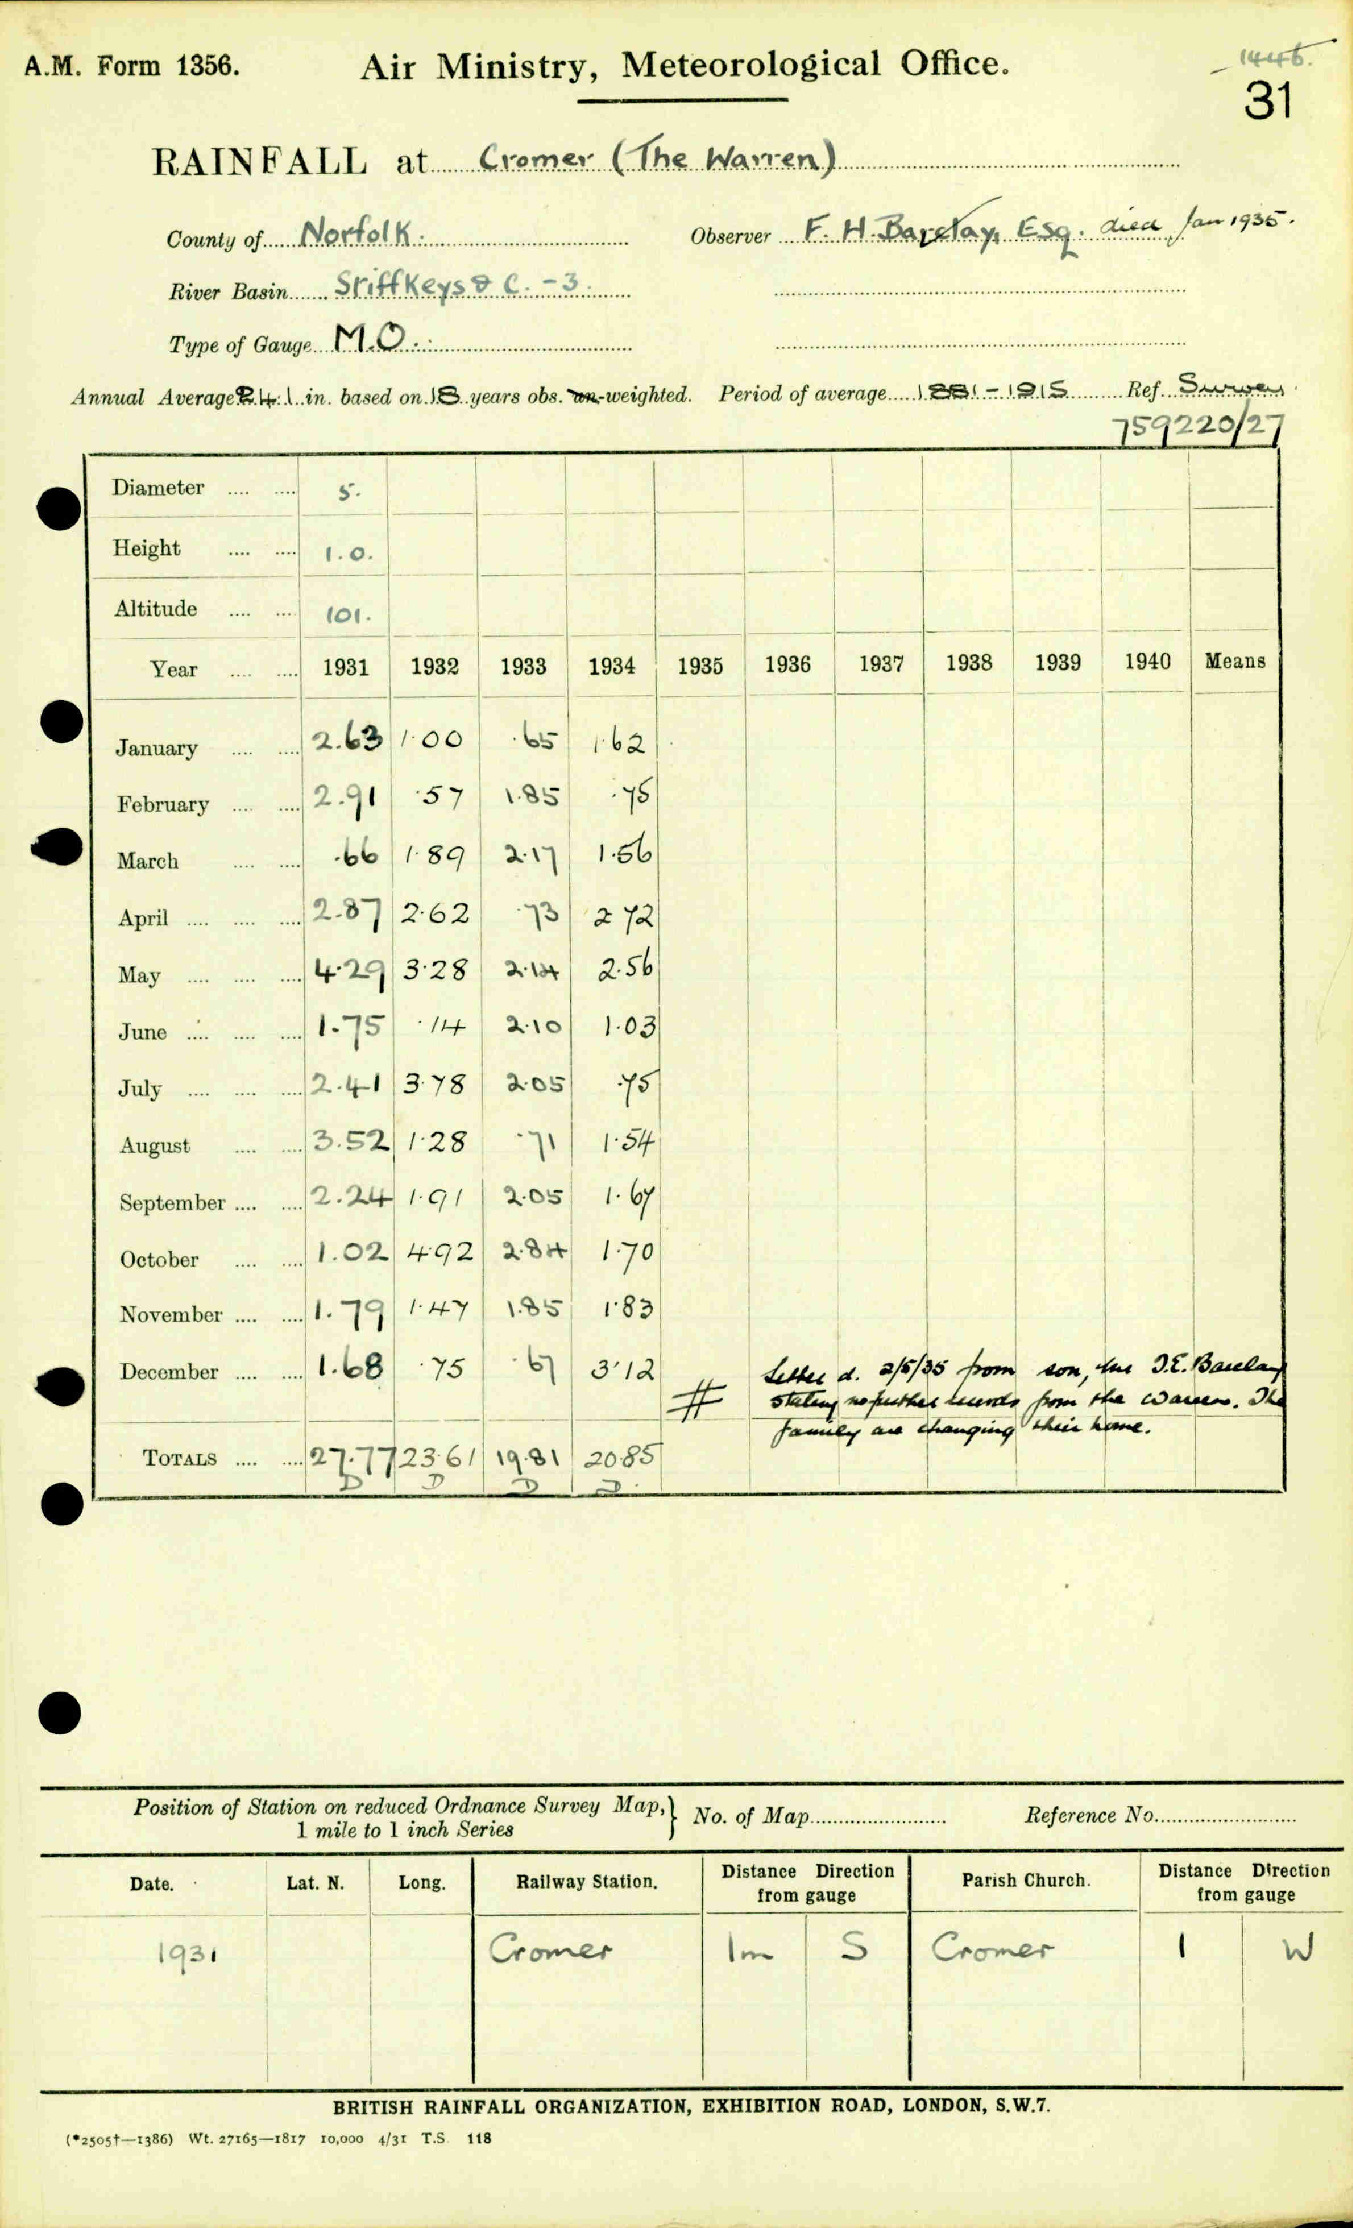 A.M. Form 1356. Air Ministry, Meteorological Office. 1446.
31
RAINFALL at Cromer (The Warren)
County of Norfolk. Observer F. H. Barclay, Esq. died Jan 1935.
River Basin Stiffkeys & C. -3.
Type of Gauge M.O.
Annual Average 24.1 in. based on 18 years obs. un-weighted. Period of average 1881-1915 Ref. Survey
759220/27
Diameter .... .... 5.
Height .... .... 1.0.
Altitude .... .... 101.
Year .... .... 1931 1932 1933 1934 1935 1936 1937 1938 1939 1940 Means
January .... .... 2.63 1.00 .65 1.62
February .... .... 2.91 .57 1.85 .75
March .... .... .66 1.89 2.17 1.56
April .... .... .... 2.87 2.62 .73 2.72
May .... .... .... 4.29 3.28 2.14 2.56
June .... .... .... 1.75 .14 2.10 1.03
July .... .... .... 2.41 3.78 2.05 .75
August .... .... 3.52 1.28 .71 1.54
September .... .... 2.24 1.91 2.05 1.67
October .... .... 1.02 4.92 2.84 1.70
November .... .... 1.79 1.47 1.85 1.83
December .... .... 1.68 .75 .67 3.12
# Letter d. 2/5/35 from son, Mr J.E. Barclay
stating no further records from the Warren. The
family are changing their home.
TOTALS .... .... 27.77 23.61 19.81 20.85
D D D D.
Position of Station on reduced Ordnance Survey Map, } No. of Map Reference No.
1 mile to 1 inch Series
Date. Lat. N. Long. Railway Station. Distance Direction from gauge Parish Church. Distance Direction from gauge
1931 Cromer 1m S Cromer 1 W
BRITISH RAINFALL ORGANIZATION, EXHIBITION ROAD, LONDON, S.W.7.
(*2505†—1386) Wt. 27165—1817 10,000 4/31 T.S. 118